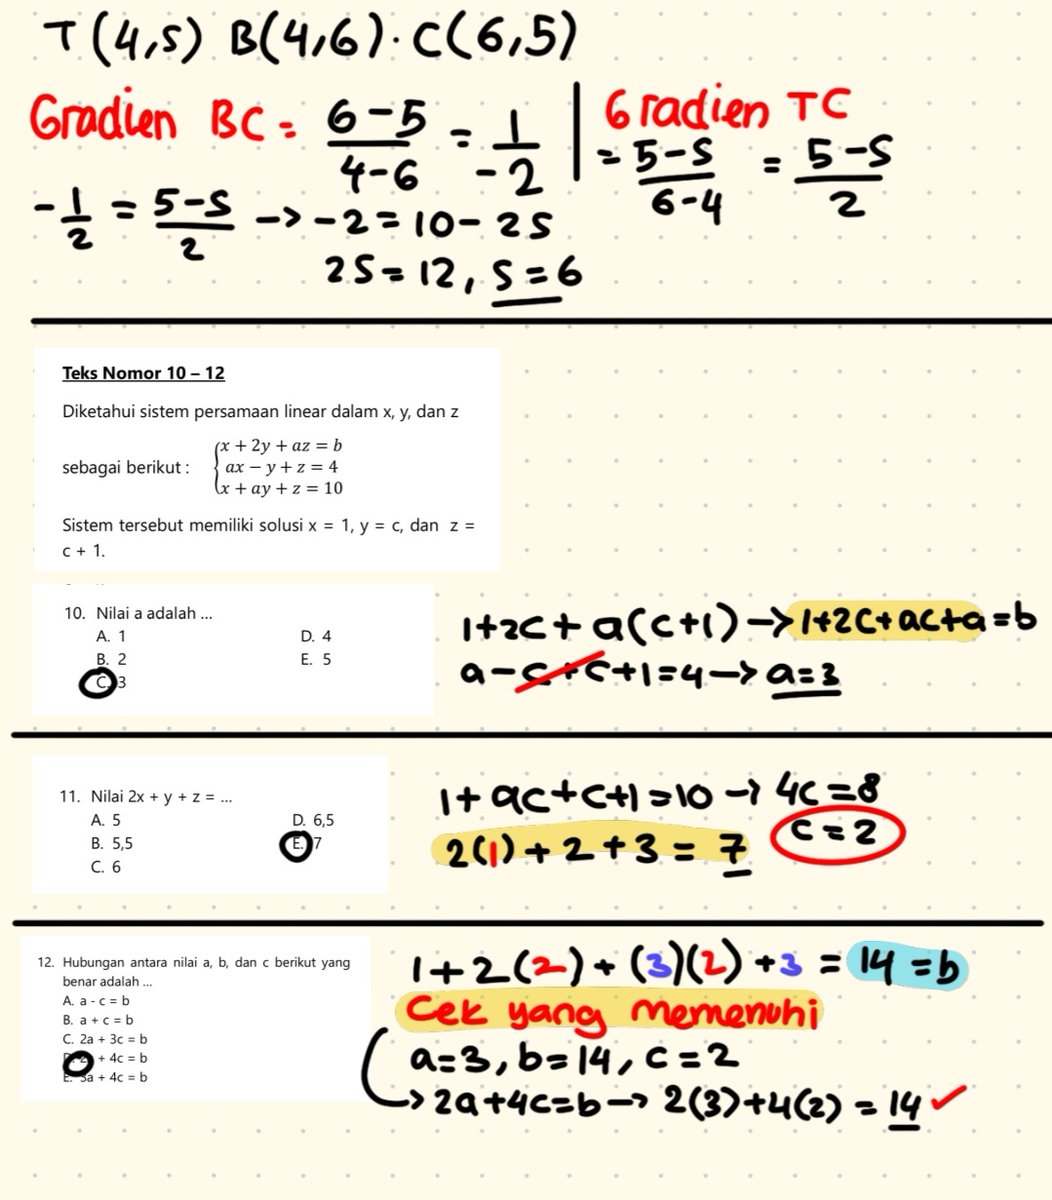 T(4,s) B(4,6). C(6,5)
Gradien BC = 6-5/4-6 = 1/-2 | Gradien TC = 5-s/6-4 = 5-s/2
-1/2 = 5-s/2 -> -2 = 10 - 2s
2s = 12, s = 6
Teks Nomor 10 – 12
Diketahui sistem persamaan linear dalam x, y, dan z
sebagai berikut : { x + 2y + az = b
ax − y + z = 4
x + ay + z = 10
Sistem tersebut memiliki solusi x = 1, y = c, dan z =
c + 1.
10. Nilai a adalah ...
A. 1
B. 2
C. 3
D. 4
E. 5
1+2c+a(c+1) -> 1+2c+ac+a=b
a-c+c+1=4 -> a=3
11. Nilai 2x + y + z = ...
A. 5
B. 5,5
C. 6
D. 6,5
E. 7
1+ac+c+1=10 -> 4c=8
c=2
2(1)+2+3=7
12. Hubungan antara nilai a, b, dan c berikut yang
benar adalah ...
A. a - c = b
B. a + c = b
C. 2a + 3c = b
+ 4c = b
E. 3a + 4c = b
1+2(2)+(3)(2)+3 = 14 = b
Cek yang memenuhi
a=3, b=14, c=2
-> 2a+4c=b -> 2(3)+4(2) = 14 ✓